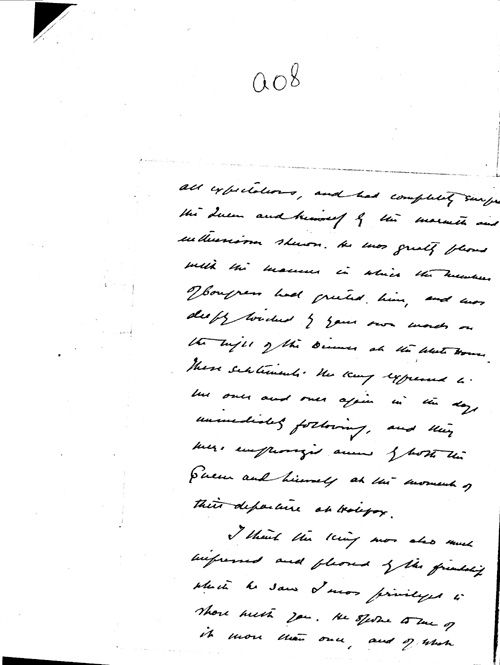 a08
all expectations, and had completely
the Queen and himself by the warmth and
enthusiasm shewn. He was greatly pleased
with the manner in which the Members
of Congress had greeted him, and was
deeply touched by your own words on
the night of the Dinner at the White House.
These sentiments the King expressed to
me over and over again in the days
immediately following, and they
were emphasized anew by both the
Queen and himself at the moment of
their departure at Halifax.
I think the King was also much
impressed and pleased by the friendship
which he saw I was privileged to
share with you. He spoke to me of
it more than once, and of what